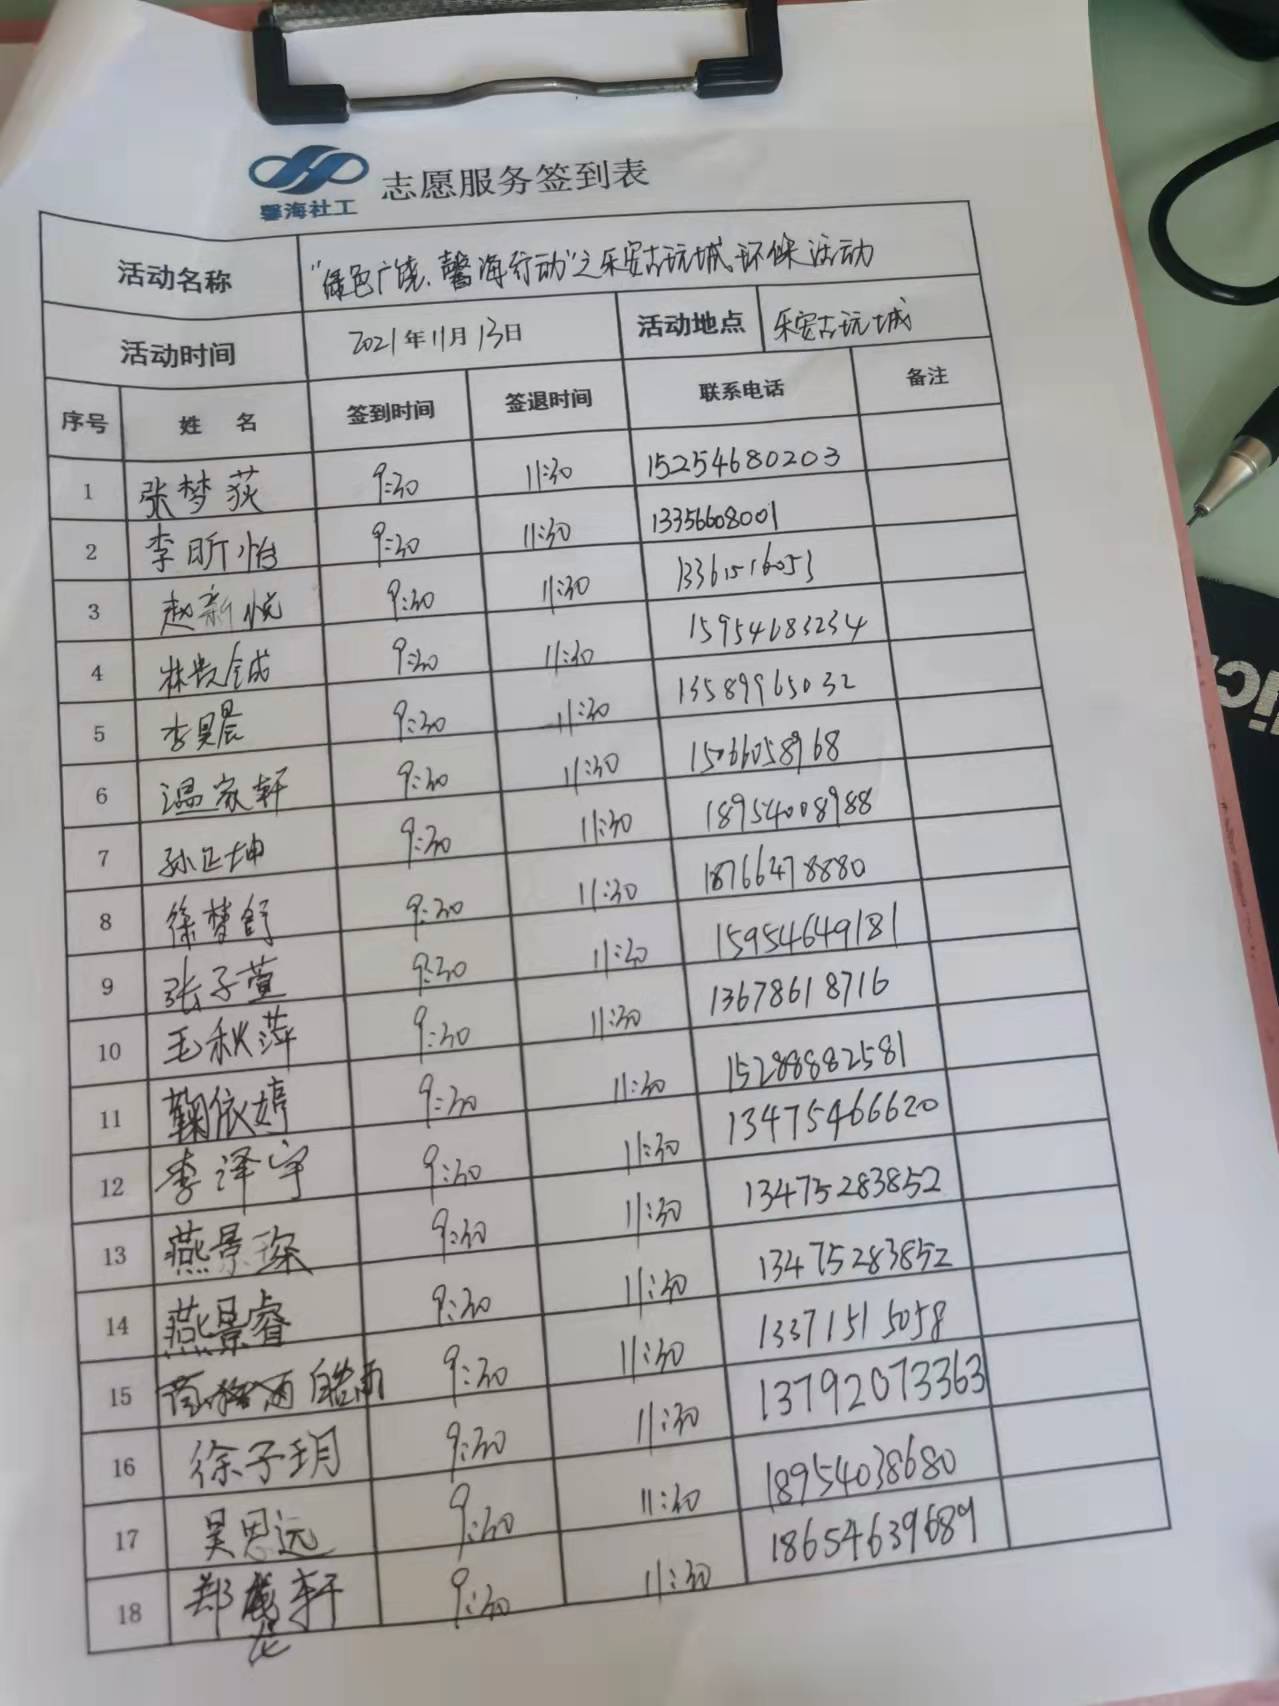 馨海社工 志愿服务签到表
活动名称 "绿色广饶,馨海行动"之乐安古玩城环保活动
活动时间 2021年11月13日 活动地点 乐安古玩城
序号 姓 名 签到时间 签退时间 联系电话 备注
1 张梦荻 9:30 11:30 15254680203
2 李昕怡 9:30 11:30 13356608001
3 赵新悦 9:30 11:30 13361516053
4 9:30 11:30 15954683234
5 李昊晨 9:30 11:30 13589965032
6 温家轩 9:30 11:30 15066058968
7 孙正坤 9:30 11:30 18954008988
8 徐梦舒 9:30 11:30 18766478880
9 张子萱 9:30 11:30 15954649181
10 毛秋萍 9:30 11:30 13678618716
11 鞠依婷 9:30 11:30 15288882581
12 李泽宇 9:30 11:30 13475466620
13 燕景琛 9:30 11:30 13475283852
14 燕景睿 9:30 11:30 13475283852
15 9:30 11:30 13371515058
16 徐子玥 9:30 11:30 13792073363
17 吴思远 9:30 11:30 18954038680
18 郑 轩 9:30 11:30 18654639689